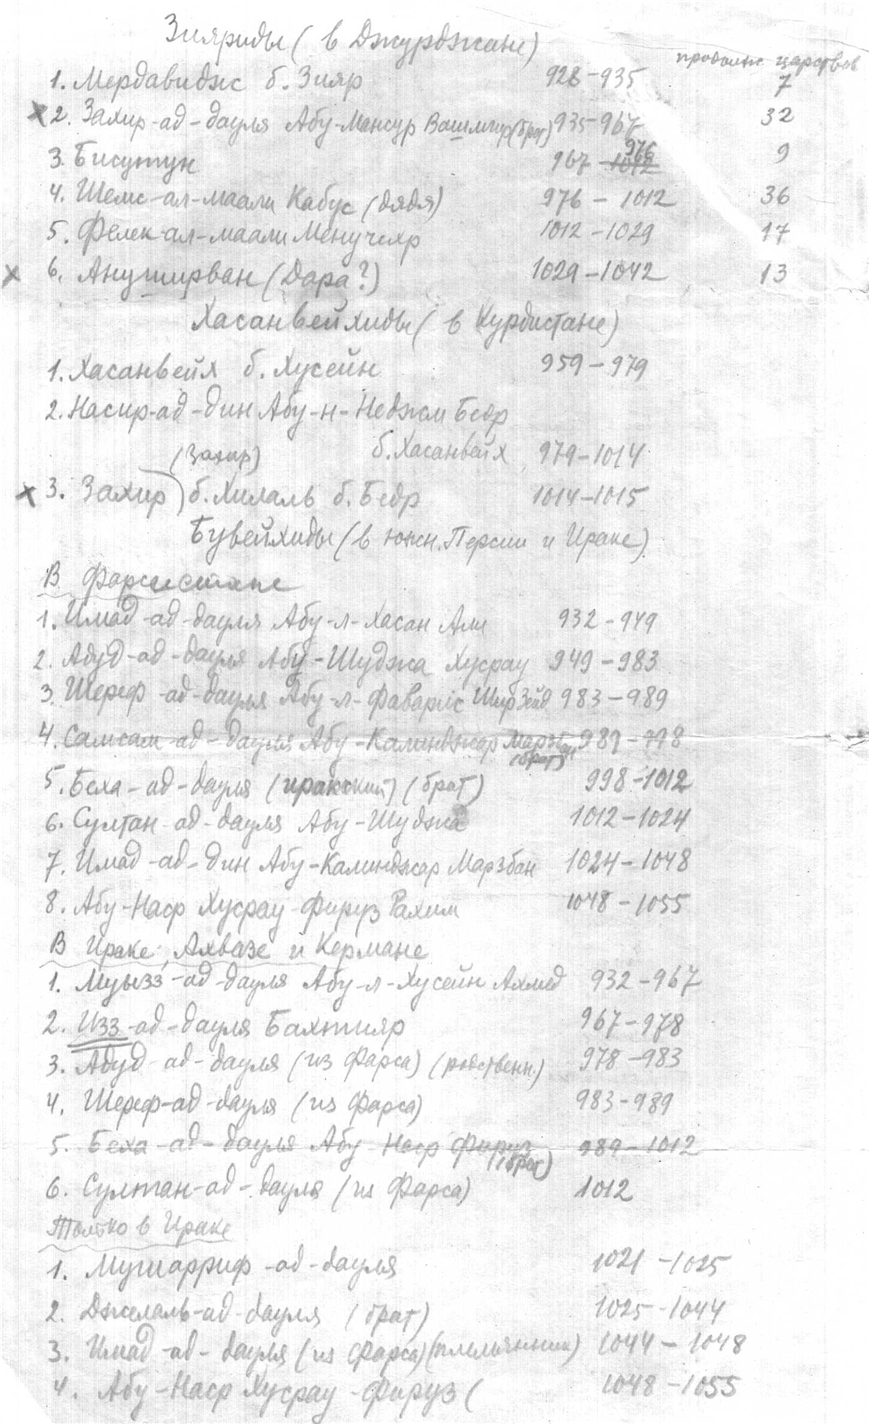 Зияриды (в Джурджане)
продолж. царствов
1. Мердавидж б. Зияр 928-935 7
x 2. Захир-ад-дауля Абу-Мансур Вашмгир (брат) 935-967 32
3. Бисутун 967-1012 976 9
4. Шемс-ал-маали Кабус (дядя) 976-1012 36
5. Фелек-ал-маали Менучехр 1012-1029 17
x 6. Ануширван (Дара?) 1029-1042 13
Хасанвейхиды (в Курдистане)
1. Хасанвейх б. Хусейн 959-979
2. Насир-ад-дин Абу-н-Неджм Бедр
б. Хасанвейх 979-1014
(Захир)
x 3. Захир) б. Хилаль б. Бедр 1014-1015
Бувейхиды (в южн. Персии и Ираке)
В Фарсистане
1. Имад-ад-дауля Абу-л-Хасан Али 932-949
2. Адуд-ад-дауля Абу-Шуджа Хусрау 949-983
3. Шереф-ад-дауля Абу-л-Фаварис Ширзейд 983-989
4. Самсам-ад-дауля Абу-Калинджар Марзбан (брат) 989-998
5. Беха-ад-дауля (иракский) (брат) 998-1012
6. Султан-ад-дауля Абу-Шуджа 1012-1024
7. Имад-ад-дин Абу-Калинджар Марзбан 1024-1048
8. Абу-Наср Хусрау-Фируз Рахим 1048-1055
В Ираке, Ахвазе и Кермане
1. Муызз-ад-дауля Абу-л-Хусейн Ахмед 932-967
2. Изз-ад-дауля Бахтияр 967-978
3. Адуд-ад-дауля (из Фарса) (родственн.) 978-983
4. Шереф-ад-дауля (из Фарса) 983-989
5. Беха-ад-дауля Абу-Наср Фируз (брат) 989-1012
6. Султан-ад-дауля (из Фарса) 1012
Только в Ираке
1. Мушарриф-ад-дауля 1021-1025
2. Джелаль-ад-дауля (брат) 1025-1044
3. Имад-ад-дауля (из Фарса) (племянник) 1044-1048
4. Абу-Наср Хусрау-Фируз ( 1048-1055